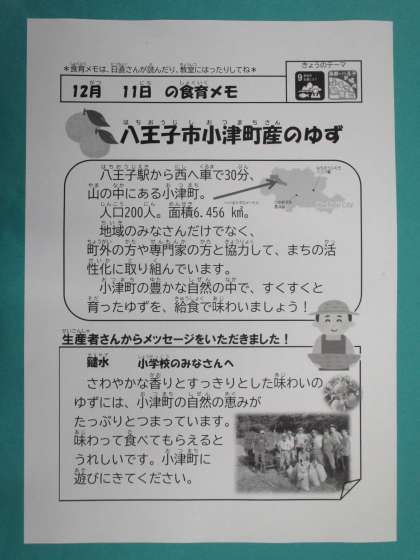 ＊食育メモは、日直さんが読んだり、教室にはったりしてね＊
きょうのテーマ
12月　11日　の食育メモ
八王子市小津町産のゆず
八王子駅から西へ車で30分、
山の中にある小津町。
人口200人。面積6.456㎢。
地域のみなさんだけでなく、
町外の方や専門家の方と協力して、まちの活
性化に取り組んでいます。
小津町の豊かな自然の中で、すくすくと
育ったゆずを、給食で味わいましょう！
生産者さんからメッセージをいただきました！
鑓水　小学校のみなさんへ
さわやかな香りとすっきりとした味わいの
ゆずには、小津町の自然の恵みが
たっぷりとつまっています。
味わって食べてもらえると
うれしいです。小津町に
遊びにきてください。